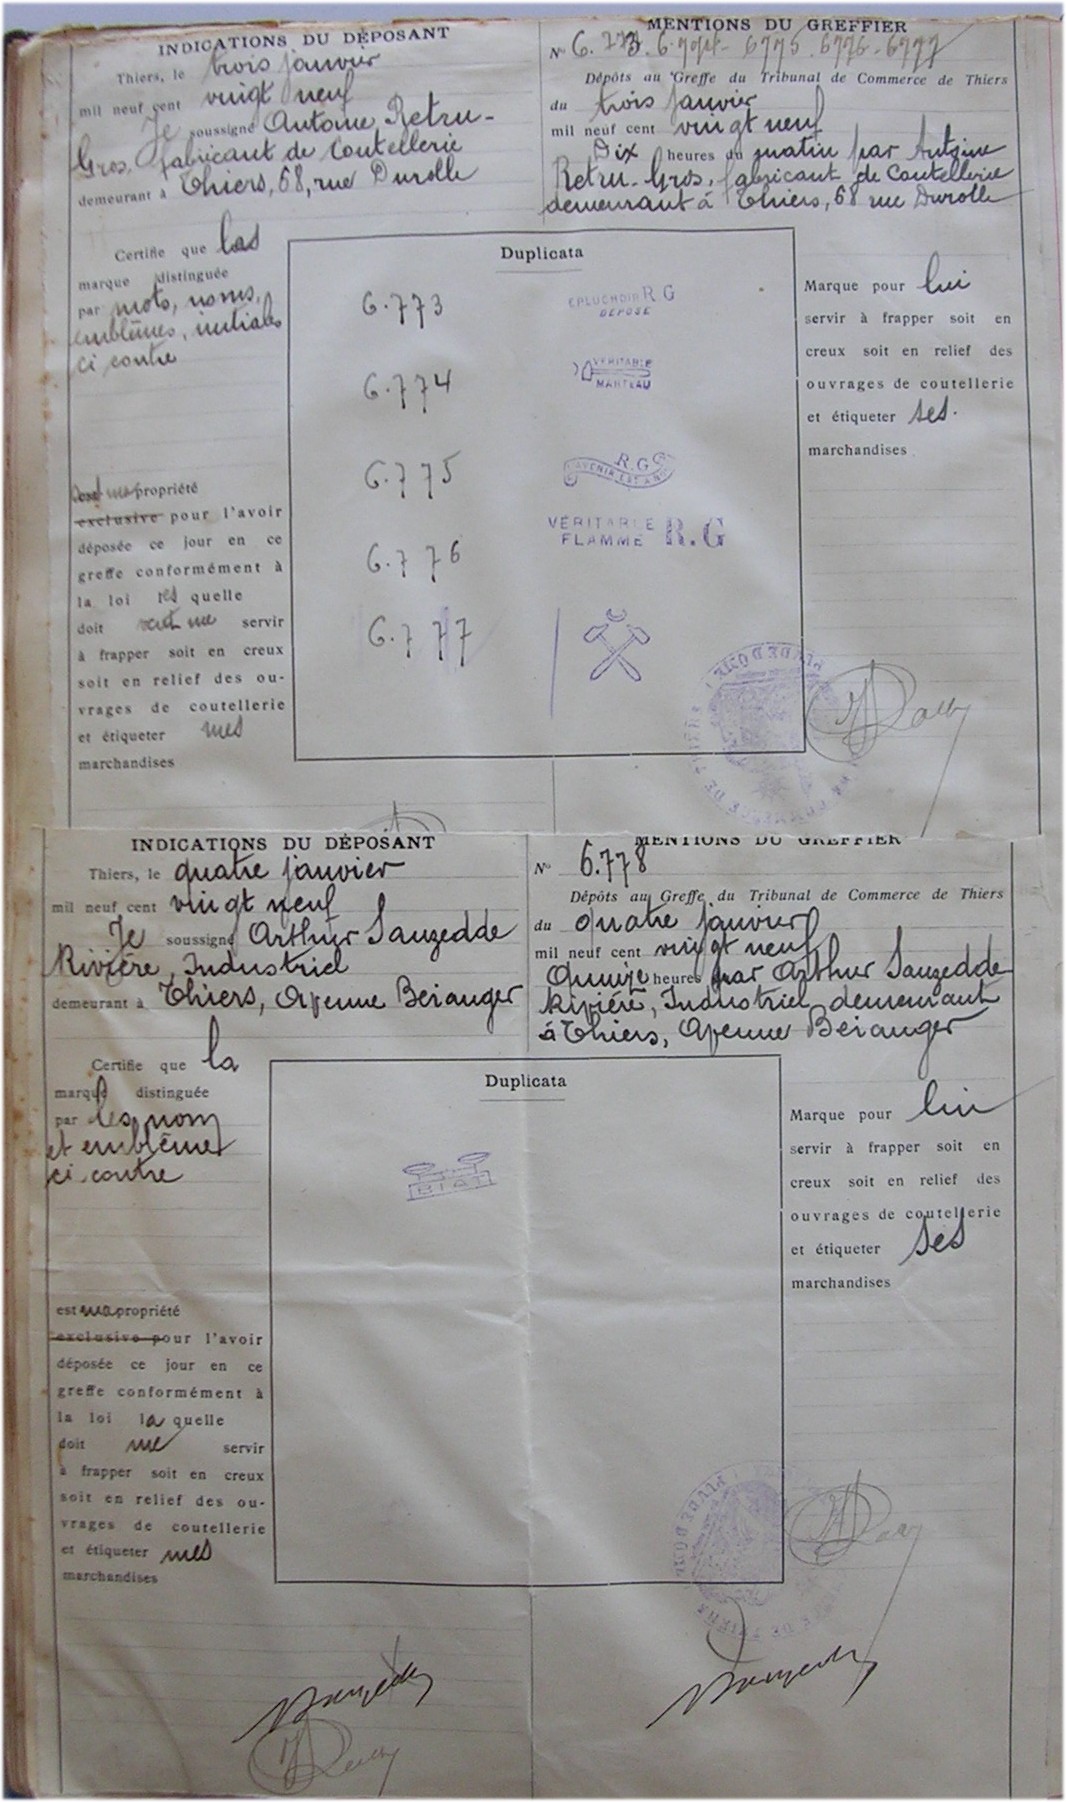 INDICATIONS DU DÉPOSANT
Thiers, le trois janvier
mil neuf cent vingt neuf
Je soussigné Antoine Retru-
Gros, fabricant de Coutellerie
demeurant à Thiers, 68, rue Durolle
Certifie que las
marque distinguée
par mots, noms,
emblêmes, initiales
ci contre
propriété
exclusive pour l'avoir
déposée ce jour en ce
greffe conformément à
la loi les quelle
doit me servir
à frapper soit en creux
soit en relief des ou-
vrages de coutellerie
et étiqueter mes
marchandises
MENTIONS DU GREFFIER
N° 6.773. 6.774. 6775. 6776. 6777
Dépôts au Greffe du Tribunal de Commerce de Thiers
du trois janvier
mil neuf cent vingt neuf
Dix heures du matin par Antoine
Retru-Gros, fabricant de Coutellerie
demeurant à Thiers, 68 rue Durolle
Duplicata
6.773
EPLUCHOIR R G
DEPOSE
6.774
VERITABLE
MARTEAU
6.775
R.G
L'AVENIR EST A NOUS
6.776
VERITABLE
FLAMME R.G
6.777
Marque pour lui
servir à frapper soit en
creux soit en relief des
ouvrages de coutellerie
et étiqueter ses.
marchandises
INDICATIONS DU DÉPOSANT
Thiers, le quatre janvier
mil neuf cent vingt neuf
Je soussigné Arthur Sauzedde
Rivière, Industriel
demeurant à Thiers, Avenue Béranger
Certifie que la
marque distinguée
par les nom
et emblême
ci-contre
est ma propriété
exclusive pour l'avoir
déposée ce jour en ce
greffe conformément à
la loi la quelle
doit me servir
à frapper soit en creux
soit en relief des ou-
vrages de coutellerie
et étiqueter mes
marchandises
MENTIONS DU GREFFIER
N° 6.778
Dépôts au Greffe du Tribunal de Commerce de Thiers
du quatre janvier
mil neuf cent vingt neuf
Quinze heures par Arthur Sauzedde
Rivière, Industriel, demeurant
à Thiers, Avenue Béranger
Duplicata
BIAT
Marque pour lui
servir à frapper soit en
creux soit en relief des
ouvrages de coutellerie
et étiqueter ses
marchandises